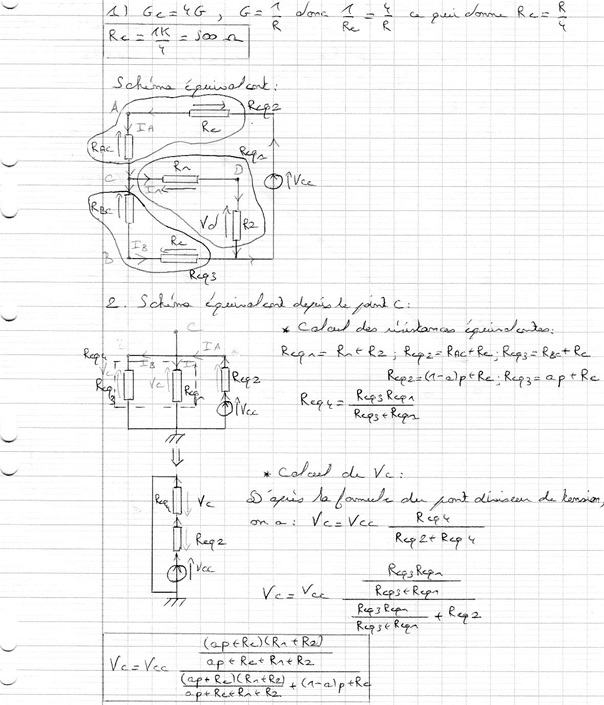 1) Gc = 4G , G = 1/R donc 1/Rc = 4/R ce qui donne Rc = R/4
Rc = 1K/4 = 500 Ω
Schéma équivalent:
A Req2
IA Rc
RAC
Req1
C R1 D
I1 Vcc
RBC
Vd R2
IB Rc
B
Req3
2. Schéma équivalent depuis le point C:
C * Calcul des résistances équivalentes:
Req1 = R1 + R2 ; Req2 = RAC + Rc ; Req3 = RBC + Rc
Req2 = (1-a)p + Rc ; Req3 = ap + Rc
Req4 = Req3 Req1 / (Req3 + Req1)
Req4 IB I1 IA
Vc Req3 Vc Req1 Req2
Vcc
* Calcul de Vc:
D'après la formule du pont diviseur de tension,
on a: Vc = Vcc Req4 / (Req2 + Req4)
Req Vc
Req2
Vcc
Vc = Vcc (Req3 Req1 / (Req3 + Req1)) / (Req3 Req1 / (Req3 + Req1) + Req2)
Vc = Vcc ((ap + Rc)(R1 + R2) / (ap + Rc + R1 + R2)) / ((ap + Rc)(R1 + R2) / (ap + Rc + R1 + R2) + (1-a)p + Rc)